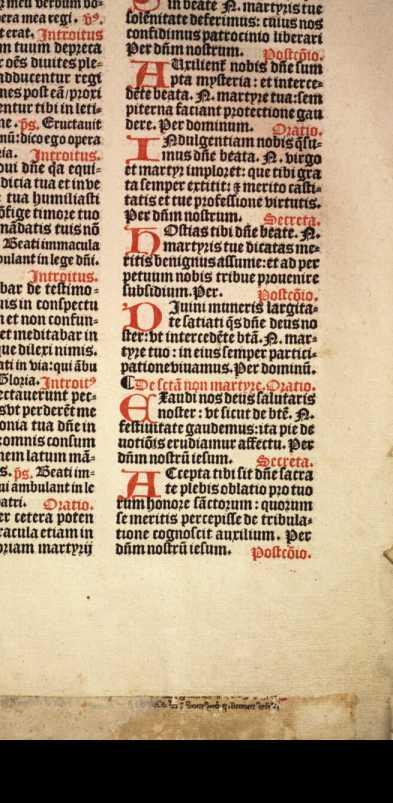 r meu verbum bo-
pera mea regi. ps.
t erat. Introitus
m tuum depreca
r oēs diuites ple-
adducentur regi
nes post eā: proxi
entur tibi in leti-
ne. ps. Eructauit
nū: dico ego opera
ria. Introitus.
oui dñe qꝫ equi-
dicia tua et in ve
tua humiliasti
ōfige timore tuo
mādatis tuis nō
Beati immacula
bulant in lege dñi.
Introitus.
bar de testimo-
nis in conspectu
m et non confun-
et meditabar in
que dilexi nimis.
ati in via: qui ābu
Gloria. Introitꝰ
ectauerunt pec-
s vt perderēt me
onia tua dñe in
: omnis consum
nem latum mā-
s. ps. Beati im-
ui ambulant in le
patri. Oratio.
er cetera poten
racula etiam in
oriam martyrij
in beate N. martyris tue
solenitate deferimus: cuius nos
confidimus patrocinio liberari
Per dñm nostrum. Postcōio.
AUxilient̄ nobis dñe sum
pta mysteria: et interce-
dēte beata. N. martyre tua: sem
piterna faciant protectione gau
dere. Per dominum. Oratio.
INdulgentiam nobis q̄su-
mus dñe beata. N. virgo
et martyr imploret: que tibi gra
ta semper extitit: ⁊ merito casti-
tatis et tue professione virtutis.
Per dñm nostrum. Secreta.
HOstias tibi dñe beate. N.
martyris tue dicatas me-
ritis benignus assume: et ad per
petuum nobis tribue prouenire
subsidium. Per. Postcōio.
DIuini muneris largita-
te satiati q̄s dñe deus no
ster: vt intercedēte btā. N. mar-
tyre tuo: in eius semper partici-
patione viuamus. Per dominū.
¶ De sctā non martyre. Oratio.
EXaudi nos deus salutaris
noster: vt sicut de btē. N.
festiuitate gaudemus: ita pie de
uotiōis erudiamur affectu. Per
dñm nostrū iesum. Secreta.
ACcepta tibi sit dñe sacra
te plebis oblatio pro tuo
rum honore sāctorum: quorum
se meritis percepisse de tribula-
tione cognoscit auxilium. Per
dñm nostrū iesum. Postcōio.